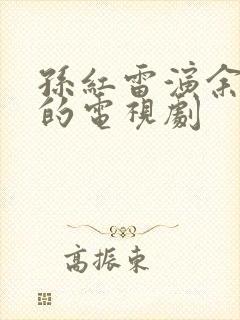 孫紅雷演余
的電視劇
高振東